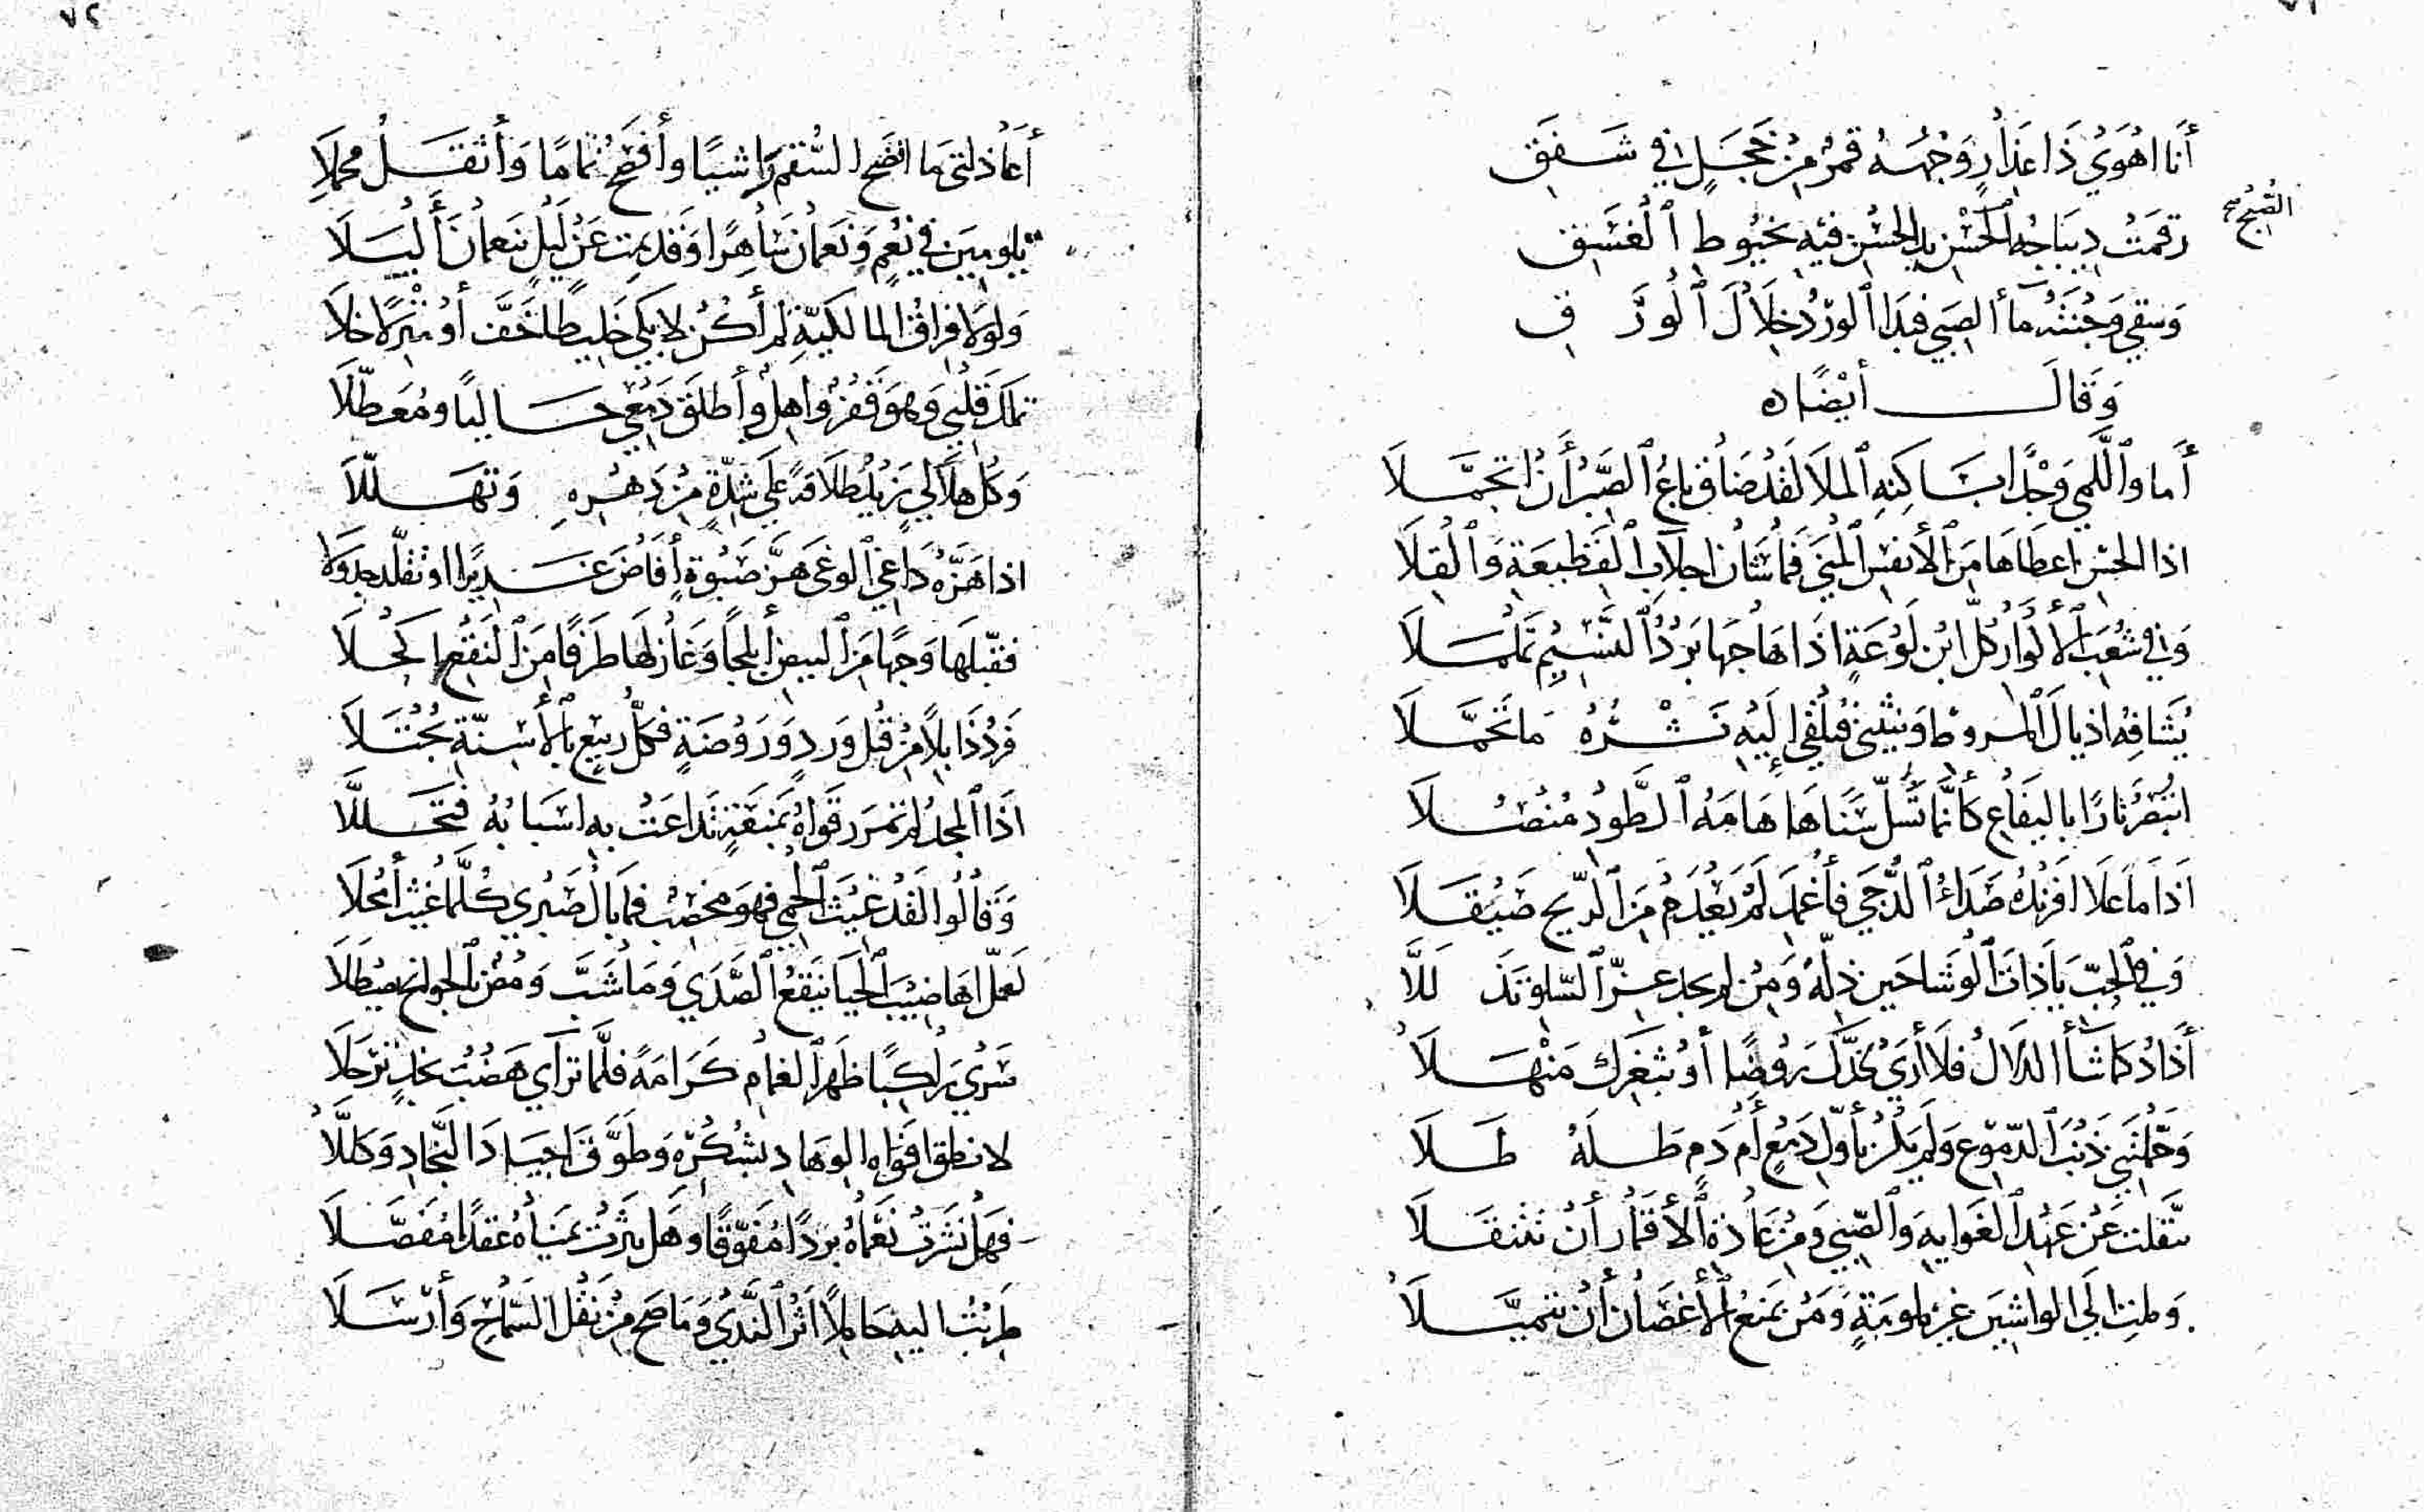 أنا اهوي ذا عذار وجهه قمر من خجل في شفق
رقمت ديباجه الحسن يد الحسن فيه بخيوط الغسق
الصبح صح
وسقي وجنته مآ الصبي فبدا الورد خلال الورق
وقال أيضا ه
أما واللمي وجدا بساكنه الملا لقد ضاق باع الصبر أن اتجملا
اذا الحسن اعطاها من الأنفس المني فما شان اجلاب القطيعة والقلا
وفي شعب الأكوار كل ابن لوعة اذا هاجها برد النسيم تململا
يشافه اذيال المروط وينثني فيلقي إليه نشره ما تحملا
اتبصر نارا باليفاع كأنما تسل سناها هامه الطود منصلا
اذا ما علا افرنده صداء الدجي فأغمد لم يعدم من الريح صيقلا
وفي الحب يا ذات الوشاحين ذله ومن لم يجد عز السلو تذللا
أذاد كما شأ الدلال فلا أري بخدك روضا أو بثغرك منهلا
وحملتني ذنب الدموع ولم يكن بأول دمع أم دم طله طلا
تنقلت عن عهد الغوايه والصبي ومن عادة الأقمار أن تتنقلا
وملت الي الواشين غير ملومة ومن يمنع الأغصان أن تتميلا
٧٢
أعاذلتي ما افضح السقم واشيا وأفصح نماما وأثقل محملا
تلومين في نعم ونعمان ساهرا وقد نمت عن ليل بنعمان أليلا
ولولا فراق المالكية لم أكن لابكي خليطا خف أو منزلا خلا
تملك قلبي وهو قفر واهل وأطلق دمعي حاليا ومعطلا
وكل هلالي يزيد طلاقه علي شدة من دهره وتهللا
اذا هزه داعي الوغي هز صبوة افاض غديرا او تقلد جدولا
فقبلها وجها من البيض أبلجا وغازلها طرفا من النقع اكحلا
فرد ذابلا من قبل ورد وروضة فكل ربيع بالأسنة يجتلا
اذا المجد لم تمرر قواه بمنعة تداعت به اسبابه فتحللا
وقالوا لقد غيث الحمي فهو مخصب فما بال صبري كلما غيث أمحلا
لعمل اهاضيب الحيا تنقع الصدي وما شب ومض الجوانح
سري راكبا ظهر الغمام كرامة فلما ترآي هضب نجد ترجلا
لانطق افواه الوهاد بشكره وطوق اجياد النجاد وكللا
فهل نثرت نعماه بردا مفوفا وهل نثرت يمناه عقدا مفصلا
طربت اليه حاملا اثر الندي وما صح من نقل السماح وأرسلا